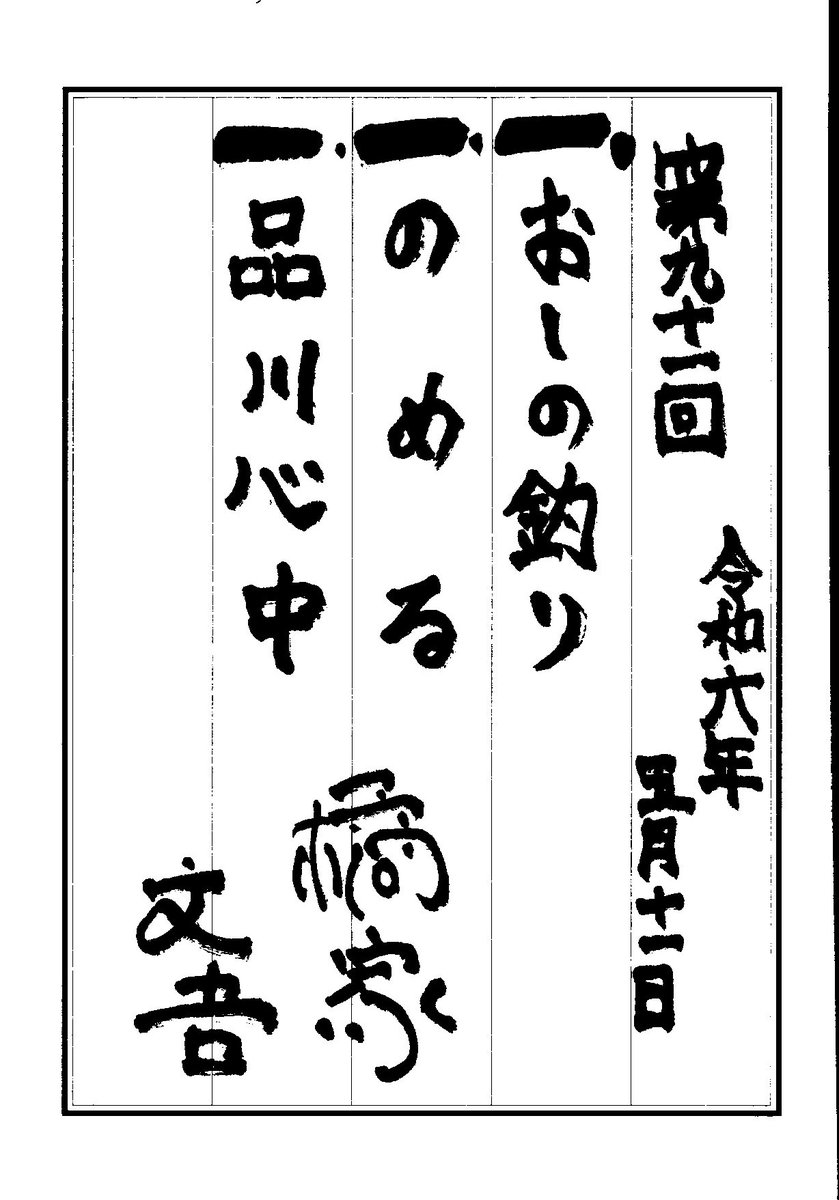 第九十一回
令和六年
五月十一日
一、おしの釣り
一、のめる
一、品川心中
橘家
文吾